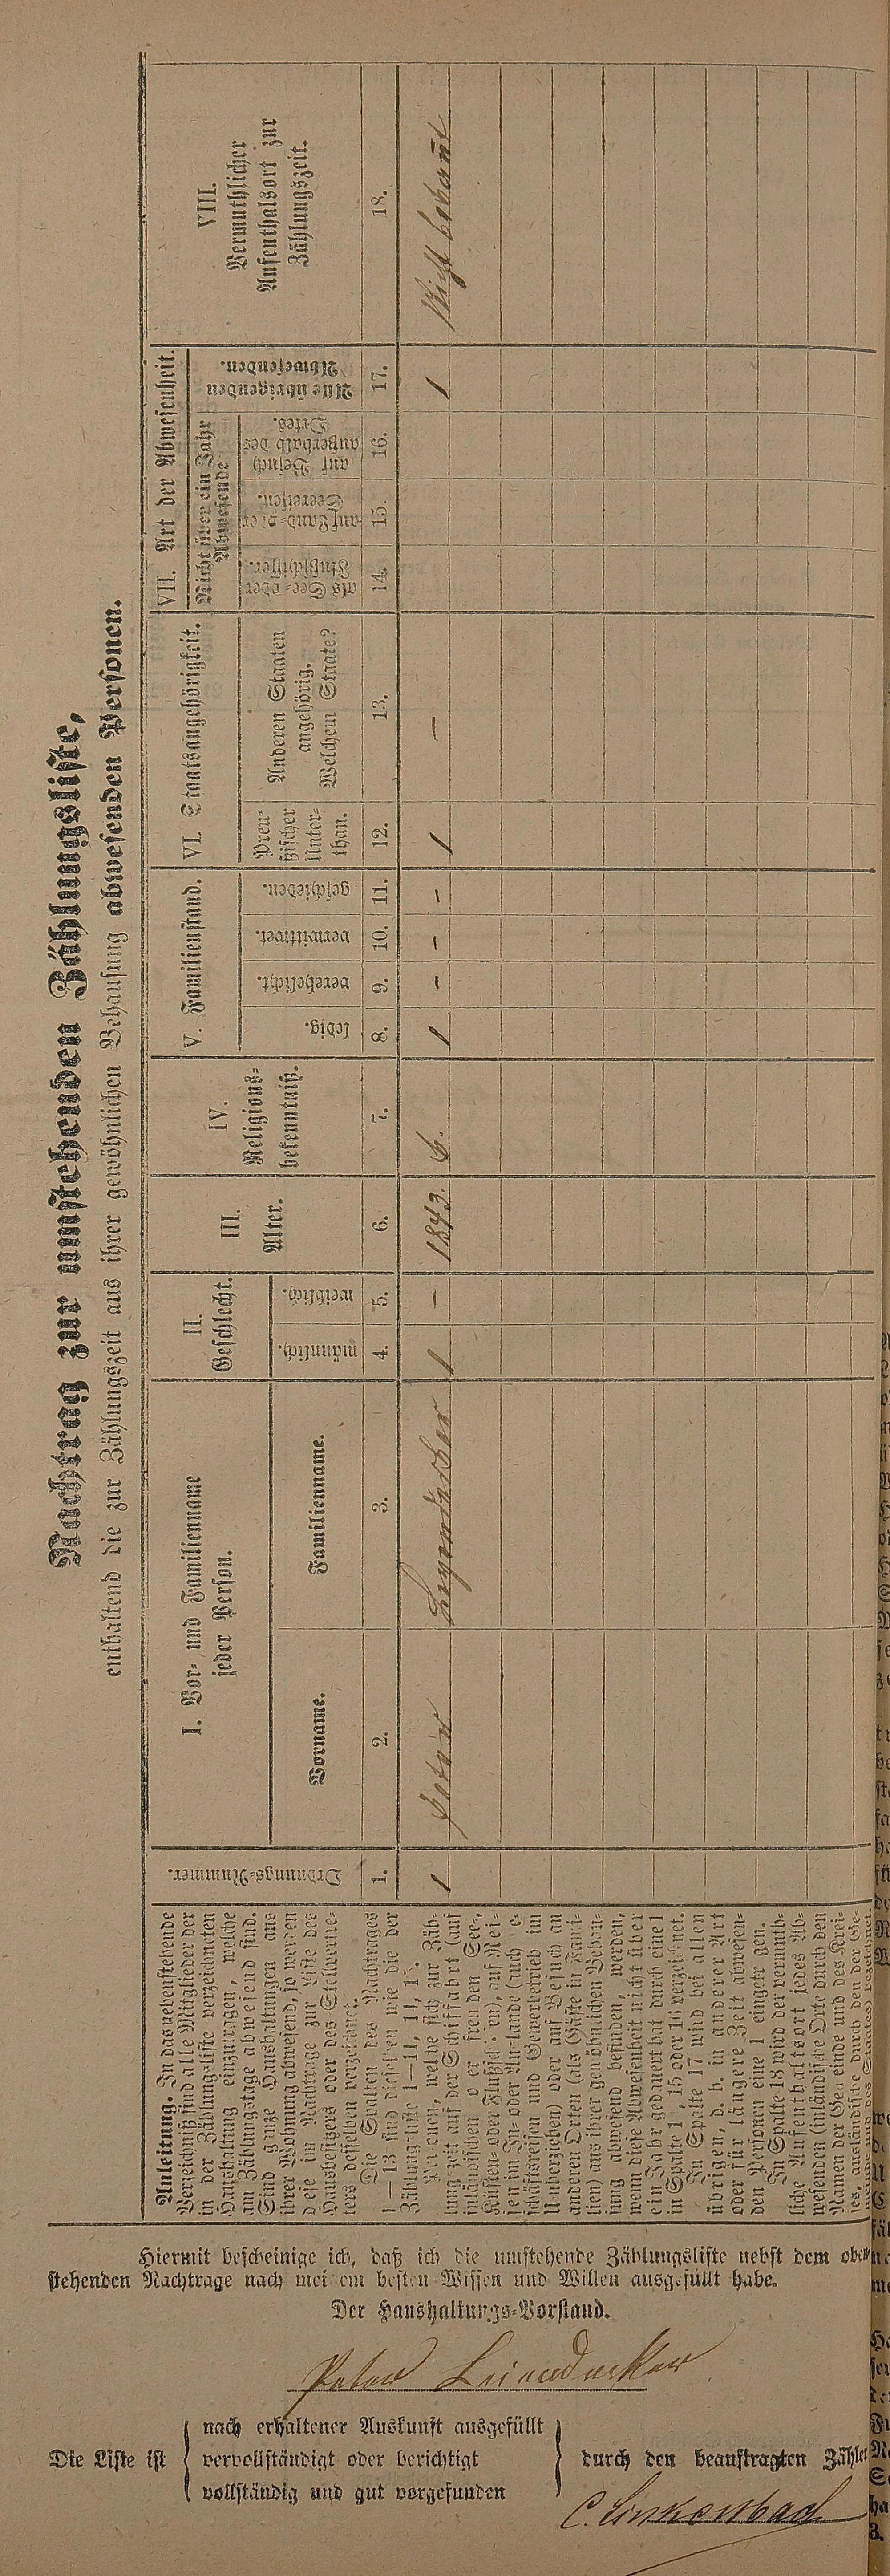 Nachtrag zur umstehenden Zählungsliste,
enthaltend die zur Zählungszeit aus ihrer gewöhnlichen Behausung abwesenden Personen.
Anleitung. In das nebenstehende
Verzeichniß sind alle Mitglieder der
in der Zählungsliste verzeichneten
Haushaltung einzutragen, welche
am Zählungstage abwesend sind.
Sind ganze Haushaltungen aus
ihrer Wohnung abwesend, so werden
diese im Nachtrage zur Liste des
Hausbesitzers oder des Stellvertre-
ters desselben verzeichnet.
Die Spalten des Nachtrages
1—13 sind dieselben wie die der
Zählungsliste 1—11,
Personen, welche sich zur Zäh-
lungszeit auf der Schifffahrt (auf
inländischen oder fremden See-,
Küsten- oder Flußschiffen), auf Rei-
sen im In- oder Auslande
schäftsreisen und Gewerbetrieb im
Umherziehen) oder auf Besuch an
anderen Orten (als Gäste in Fami-
lien) aus ihrer gewöhnlichen Behau-
sung abwesend befinden, werden,
wenn diese Abwesenheit nicht über
ein Jahr gedauert hat durch eine 1
in Spalte 14, 15 oder 16 verzeichnet.
In Spalte 17 wird bei allen
übrigen, d. h. in anderer Art
oder für längere Zeit abwesen-
den Personen eine 1 eingetragen.
In Spalte 18 wird der vermuth-
liche Aufenthaltsort jedes Ab-
wesenden (inländische Orte durch den
Namen der Gemeinde und des Krei-
ses, ausländische durch den der Ge-
meinde und des Staates) bezeichnet.
Ordnungs-Nummer.
I. Vor- und Familienname
jeder Person.
Vorname.
Familienname.
II.
Geschlecht.
männlich.
weiblich.
III.
Alter.
IV.
Religions-
bekenntniß.
V. Familienstand.
ledig.
verehelicht.
verwittwet.
geschieden.
VI. Staatsangehörigkeit.
Preu-
ßischer
Unter-
than.
Anderen Staaten
angehörig.
Welchem Staate?
VII. Art der Abwesenheit.
Nicht über ein Jahr
Abwesende
als See- oder
Flußschiffer.
auf Land- oder
Seereisen.
auf Besuch
außerhalb des
Ortes.
Alle übrigen
Abwesenden.
VIII.
Vermuthlicher
Aufenthalsort zur
Zählungszeit.
1. 2. 3. 4. 5. 6. 7. 8. 9. 10. 11. 12. 13. 14. 15. 16. 17. 18.
1 Peter Leyendecker 1 – 1843. 1 – – – 1 – 1 Nicht bekannt
Hiermit bescheinige ich, daß ich die umstehende Zählungsliste nebst dem oben
stehenden Nachtrage nach meinem besten Wissen und Willen ausgefüllt habe.
Der Haushaltungs-Vorstand.
Peter Leiendecker
Die Liste ist
nach erhaltener Auskunft ausgefüllt
vervollständigt oder berichtigt
vollständig und gut vorgefunden
durch den beauftragten Zähler
C. Linkenbach